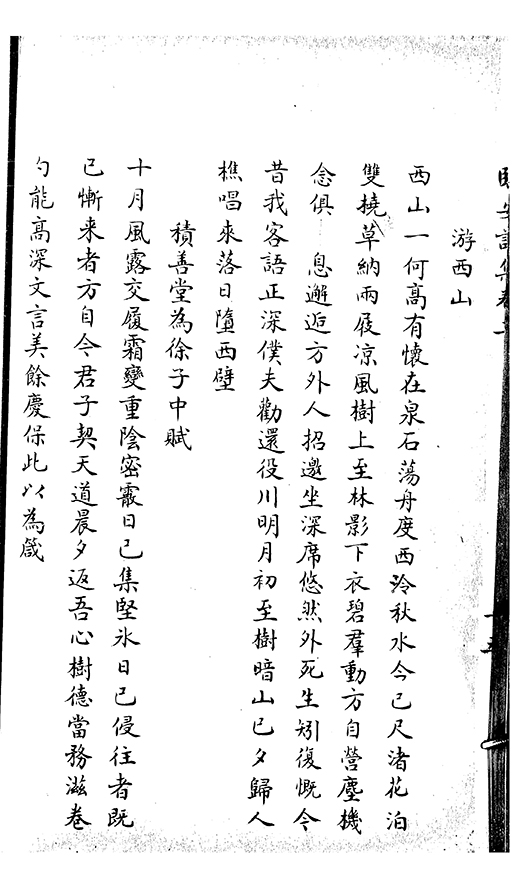 游西山
西山一何高有懷在泉石蕩舟度西泠秋水今已尺渚花泊
雙橈草納兩屐凉風樹上至林影下衣碧羣動方自營塵機
念俱息邂逅方外人招邀坐深席悠然外死生矧復慨今
昔我客語正深僕夫勸還役川明月初至樹暗山已夕歸人
樵唱來落日墮西壁
積善堂為徐子中賦
十月風露交履霜變重陰密霰日已集堅氷日已侵往者既
已慚来者方自今君子契天道晨夕返吾心樹德當務滋卷
勺能高深文言美餘慶保此以為箴